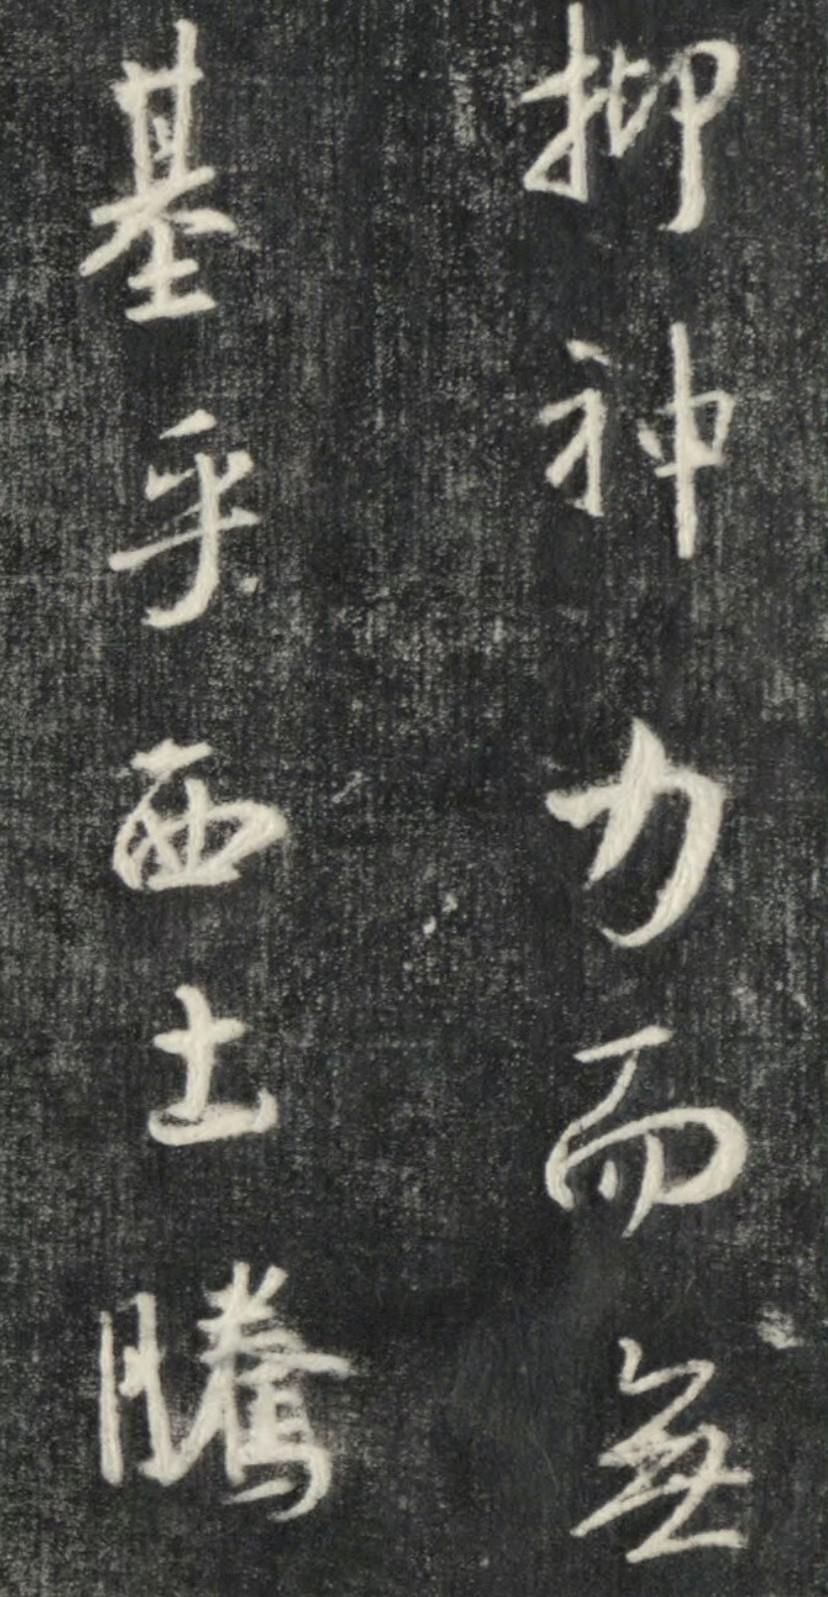 抑神力而無
基乎西土騰